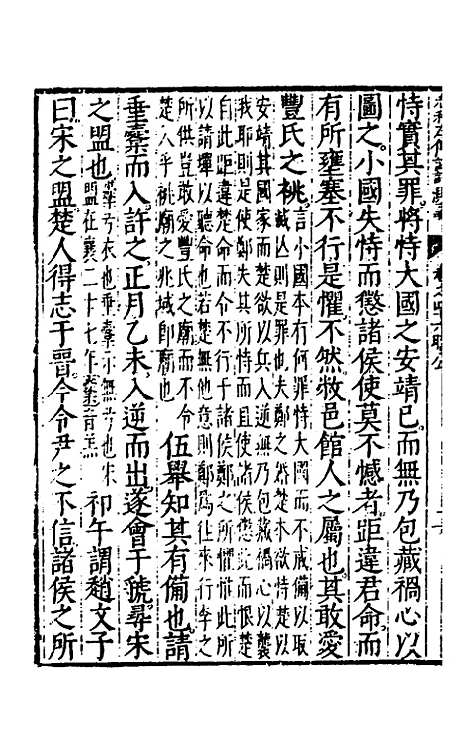 恃實其罪。將恃大國之安靖己。而無乃包藏禍心以
圖之。小國失恃而懲諸侯使莫不憾者。距違君命而
有所壅塞不行是懼。不然敝邑館人之屬也。其敢愛
豐氏之祧。言小國本有何罪恃大國而不戒備以取
滅亡則是罪也夫鄭之然楚本欲恃楚以
安靖其國家而楚欲以兵入逆無乃包藏禍心以襲
我耶則是使鄭失其所恃而且使諸侯懲而恨楚
自此距違楚命而令不行于諸侯鄭之所懼惟此所
以請墠以聽命也若無他意則鄭爲往來行李之
所供豈敢愛豐氏之廟而不令
楚人乎祧廟之兆域即廟也 伍舉知其有備也。請
垂櫜而入。許之。正月乙未入逆而出。遂會于虢。尋宋
之盟也。櫜弓衣也垂櫜示無弓也宋
盟在襄二十七年櫜音羔 祁午謂趙文子
曰。宋之盟。楚人得志于晉。今令尹之不信。諸侯之所